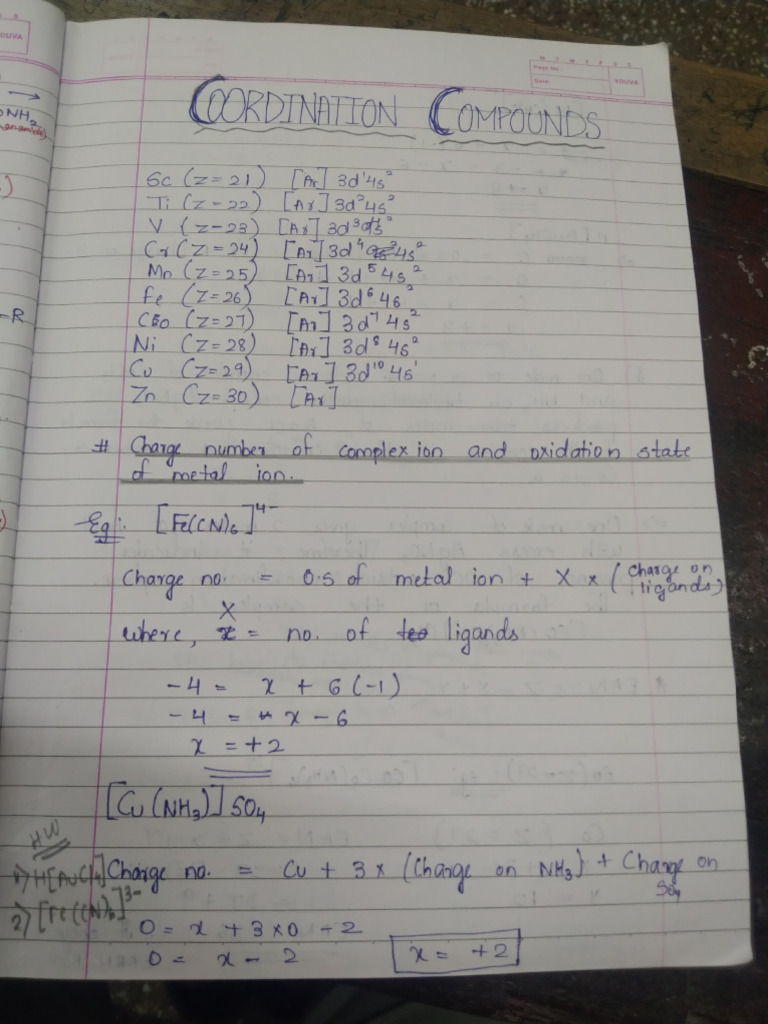 COORDINATION COMPOUNDS
Page No
Date
YOUVA
NH2
Sc (Z=21) [Ar] 3d¹4s²
Ti (Z-22) [Ar] 3d²4s²
V (Z-23) [Ar] 3d³4s²
Cr (Z=24) [Ar] 3d⁴ 4s²
Mn (Z=25) [Ar] 3d⁵ 4s²
Fe (Z=26) [Ar] 3d⁶ 4s²
-R
Co (Z=27) [Ar] 3d⁷ 4s²
Ni (Z=28) [Ar] 3d⁸ 4s²
Cu (Z=29) [Ar] 3d¹⁰ 4s¹
Zn (Z=30) [Ar]
# Charge number of complex ion and oxidation state
of metal ion.
Eg: [Fe(CN)₆]⁴⁻
Charge no. = 0.s of metal ion + X × (Charge on ligands)
where, X = no. of ligands
-4 = x + 6(-1)
-4 = x - 6
x = +2
[Cu(NH₃)]SO₄
HW
1) H[AuCl4]
2) [Fe(CN)₆]³⁻
Charge no. = Cu + 3 × (Charge on NH₃) + Charge on SO₄
0 = x + 3×0 - 2
0 = x - 2
x = +2